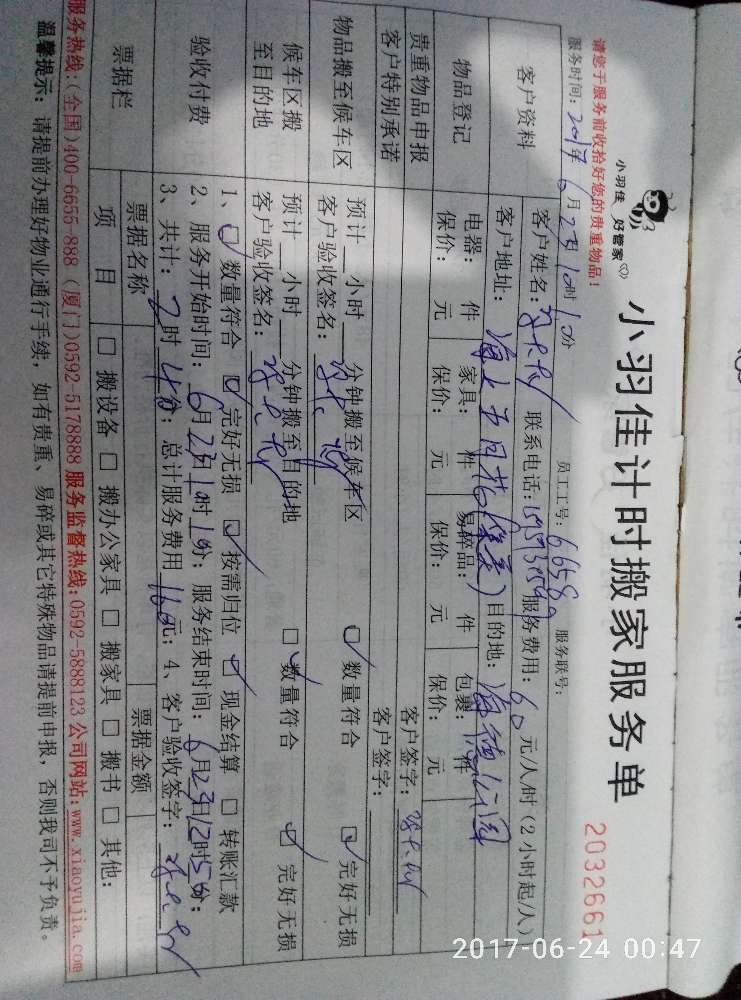 小羽佳 好管家
小羽佳计时搬家服务单
2032661
请您于服务前收拾好您的贵重物品!
员工工号: 6658 服务联号:
服务时间: 2017年6月23日10时10分
客户资料
客户姓名: 联系电话: 服务费用: 60元/人/时(2小时起/人)
客户地址: 海上五月花 目的地: 海德公园
物品登记
电器: 件 家具: 件 易碎品: 件 包裹: 件
保价: 元 保价: 元 保价: 元 保价: 元
贵重物品申报 客户签字:
客户特别承诺 客户签字:
物品搬至候车区
预计__小时__分钟搬至候车区 ☑ 数量符合 ☑ 完好无损
客户验收签名:
候车区搬至目的地
预计__小时__分钟搬至目的地 ☑ 数量符合 ☑ 完好无损
客户验收签名:
验收付费
1、☑ 数量符合 ☑ 完好无损 ☑ 按需归位 ☑ 现金结算 □ 转账汇款
2、服务开始时间: 6月23日10时10分; 服务结束时间: 6月23日12时5分;
3、共计: 2时 分; 总计服务费用 160元; 4、客户验收签字:
票据栏
票据名称 票据金额
项 目 □ 搬设备 □ 搬办公家具 □ 搬家具 □ 搬书 □ 其他:
服务热线:(全国)400-6655-888 (厦门)0592-5178888 服务监督热线:0592-5888123 公司网站:www.xiaoyujia.com
温馨提示: 请提前办理好物业通行手续, 如有贵重、易碎或其它特殊物品请提前申报, 否则我司不予负责。
2017-06-24 00:47